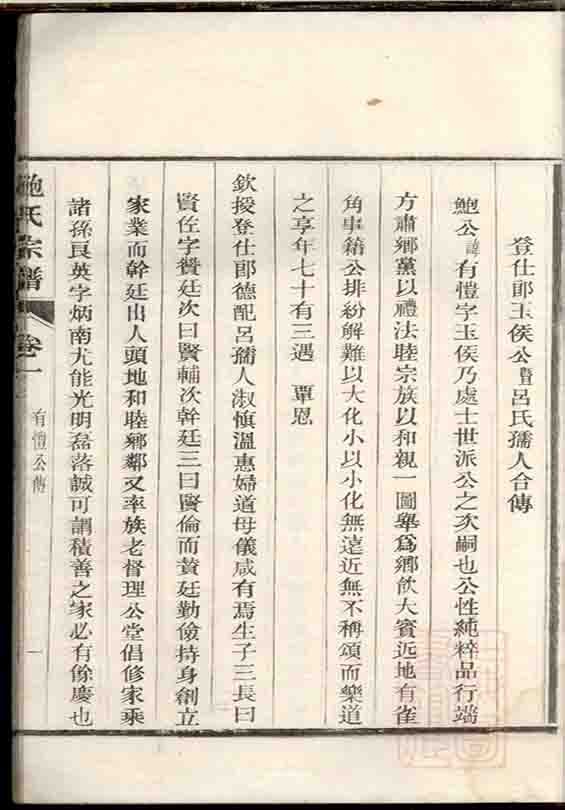 登仕郎玉侯公暨呂氏孺人合傳
鮑公諱有愷字玉侯乃處士世派公之次嗣也公性純粹品行端
方肅鄉黨以禮法睦宗族以和親一圖舉爲鄉飲大賓近地有雀
角事籍公排紛解難以大化小以小化無遠近無不稱頌而樂道
之享年七十有三遇 覃恩
欽授登仕郎德配呂孺人淑慎溫惠婦道母儀咸有焉生子三長曰
賢佐字賛廷次曰賢輔次幹廷三曰賢倫而賛廷勤儉持身創立
家業而幹廷出人頭地和睦鄉鄰又率族老督理公堂倡修家乘
諸孫良英字炳南尤能光明磊落誠可謂積善之家必有餘慶也
鮑氏宗譜
卷一
有愷公傳
一